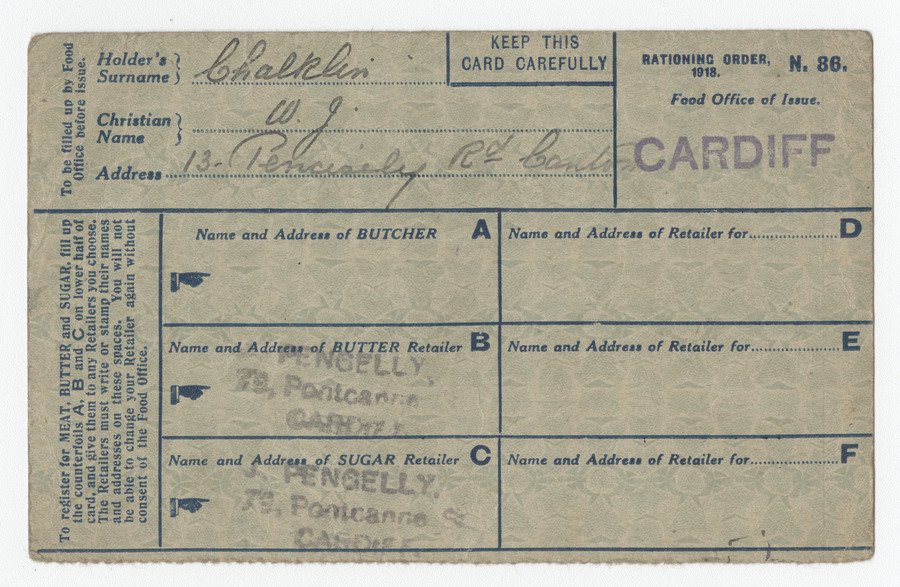 To be filled up by Food
Office before issue.
Holder's
Surname
Chalklin
Christian
Name
W. J.
Address
13. Penciseley Rd Canton
KEEP THIS
CARD CAREFULLY
RATIONING ORDER,
1918.
N. 86.
Food Office of Issue.
CARDIFF
To register for MEAT, BUTTER and SUGAR, fill up
the counterfoils A, B and C on lower half of
card, and give them to any Retailers you choose.
The Retailers must write or stamp their names
and addresses on these spaces. You will not
be able to change your Retailer again without
consent of the Food Office.
Name and Address of BUTCHER A
Name and Address of Retailer for.................... D
Name and Address of BUTTER Retailer B
PENGELLY,
Pontcanna
CARDIFF
Name and Address of Retailer for.................... E
Name and Address of SUGAR Retailer C
J. PENGELLY,
Pontcanna
CARDIFF
Name and Address of Retailer for.................... F